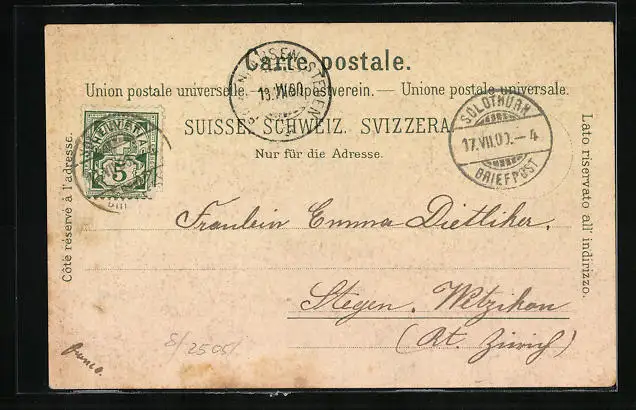 Carte postale.
Union postale universelle. — Weltpostverein. — Unione postale universale.
SUISSE. SCHWEIZ. SVIZZERA.
Nur für die Adresse.
Côté réservé à l'adresse.
Lato riservato all' indirizzo.
HELVETIA
5
SOLOTHURN
17.VII.00.–4
BRIEFPOST
Fräulein Emma Dietliker,
Stegen, Wetzikon
(Kt. Zürich)